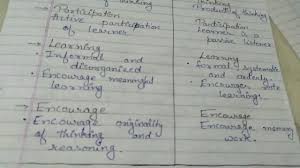 of thinking
→ Participation
Active participation
of learner
→ Learning
Informal and
disorganised
• Encourage meaningful
learning
→ Encourage
• Encourage originality
of thinking and
reasoning.
thinking
thinking
Participation
Learner is a
passive listener
Learning
formal, systematic
and orderly.
• Encourage rote
learning.
Encourage
Encourage memory
work.